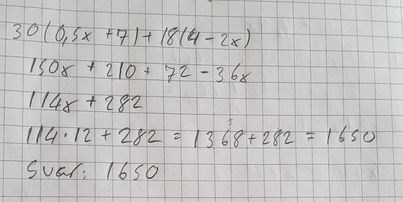 30(0,5x + 7) + 18(4 - 2x)
150x + 210 + 72 - 36x
114x + 282
114 · 12 + 282 = 1368 + 282 = 1650
Svar: 1650